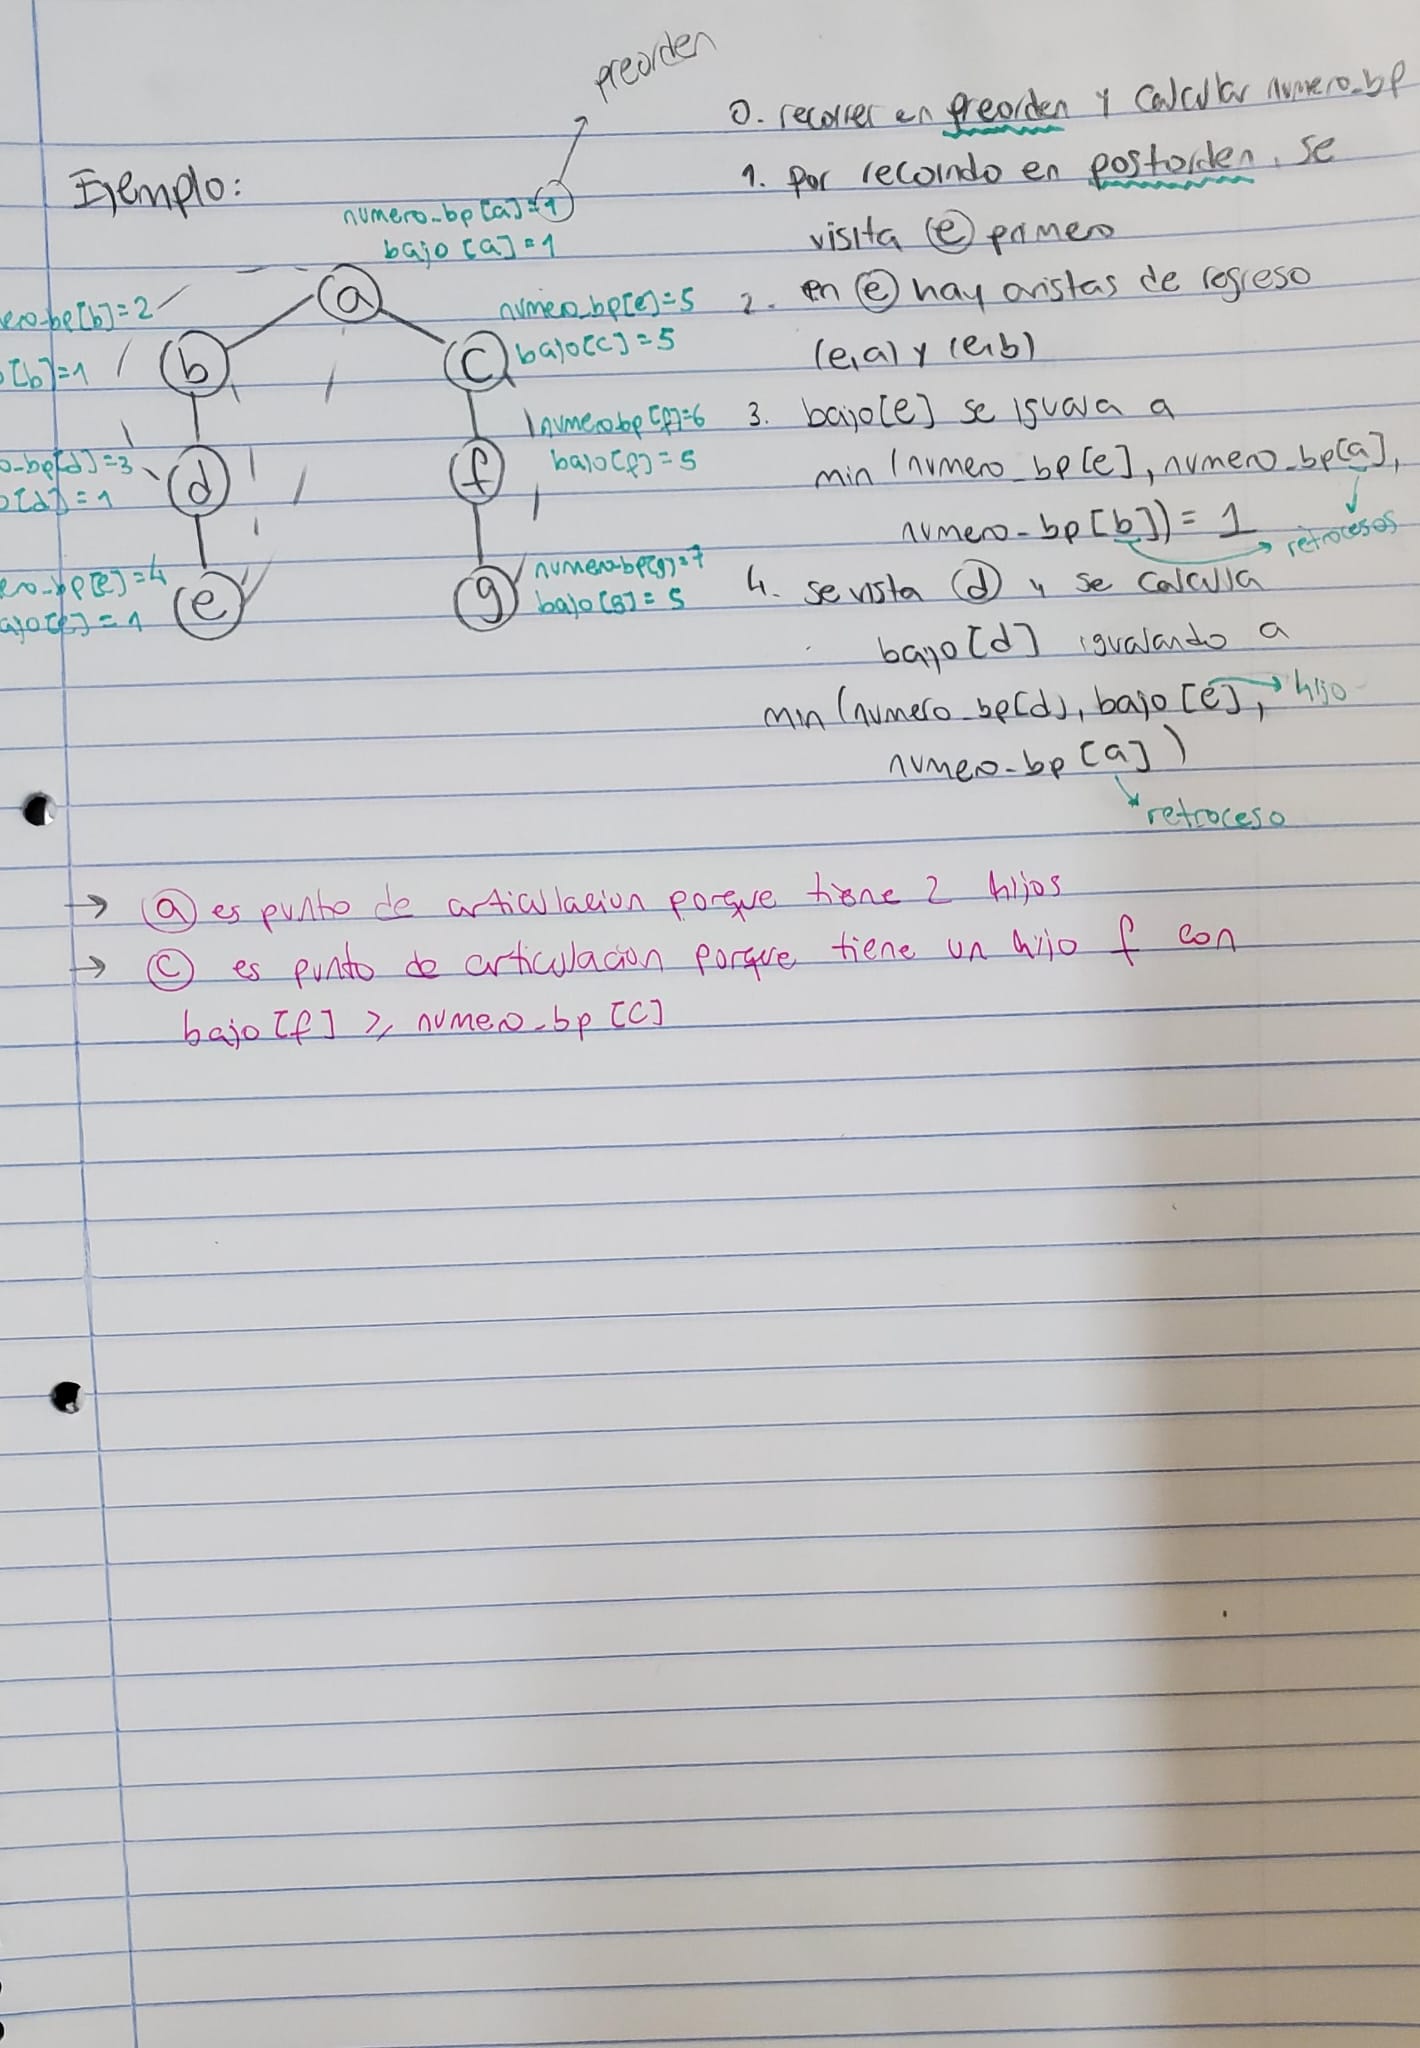 preorden
Ejemplo:
numero_bp[a]=1
bajo[a]=1
ero_bp[b]=2
[b]=1
a
b
c
numero_bp[e]=5
bajo[c]=5
o_bp[d]=3
o[d]=1
d
f
numero_bp[f]=6
bajo[f]=5
ero_bp[e]=4
ajo[e]=1
e
g
numero_bp[g]=7
bajo[g]=5
0. recorrer en preorden y calcular numero_bp
1. por recorrido en postorden, se
visita e primero
2. en e hay aristas de regreso
(e,a) y (e,b)
3. bajo[e] se iguala a
min (numero_bp[e], numero_bp[a],
numero_bp[b]) = 1
retrocesos
4. se visita d y se calcula
bajo[d] igualando a
min (numero_bp[d], bajo[e],
hijo
numero_bp[a])
retroceso
→ a es punto de articulacion porque tiene 2 hijos
→ c es punto de articulacion porque tiene un hijo f con
bajo[f] ≥ numero_bp[c]